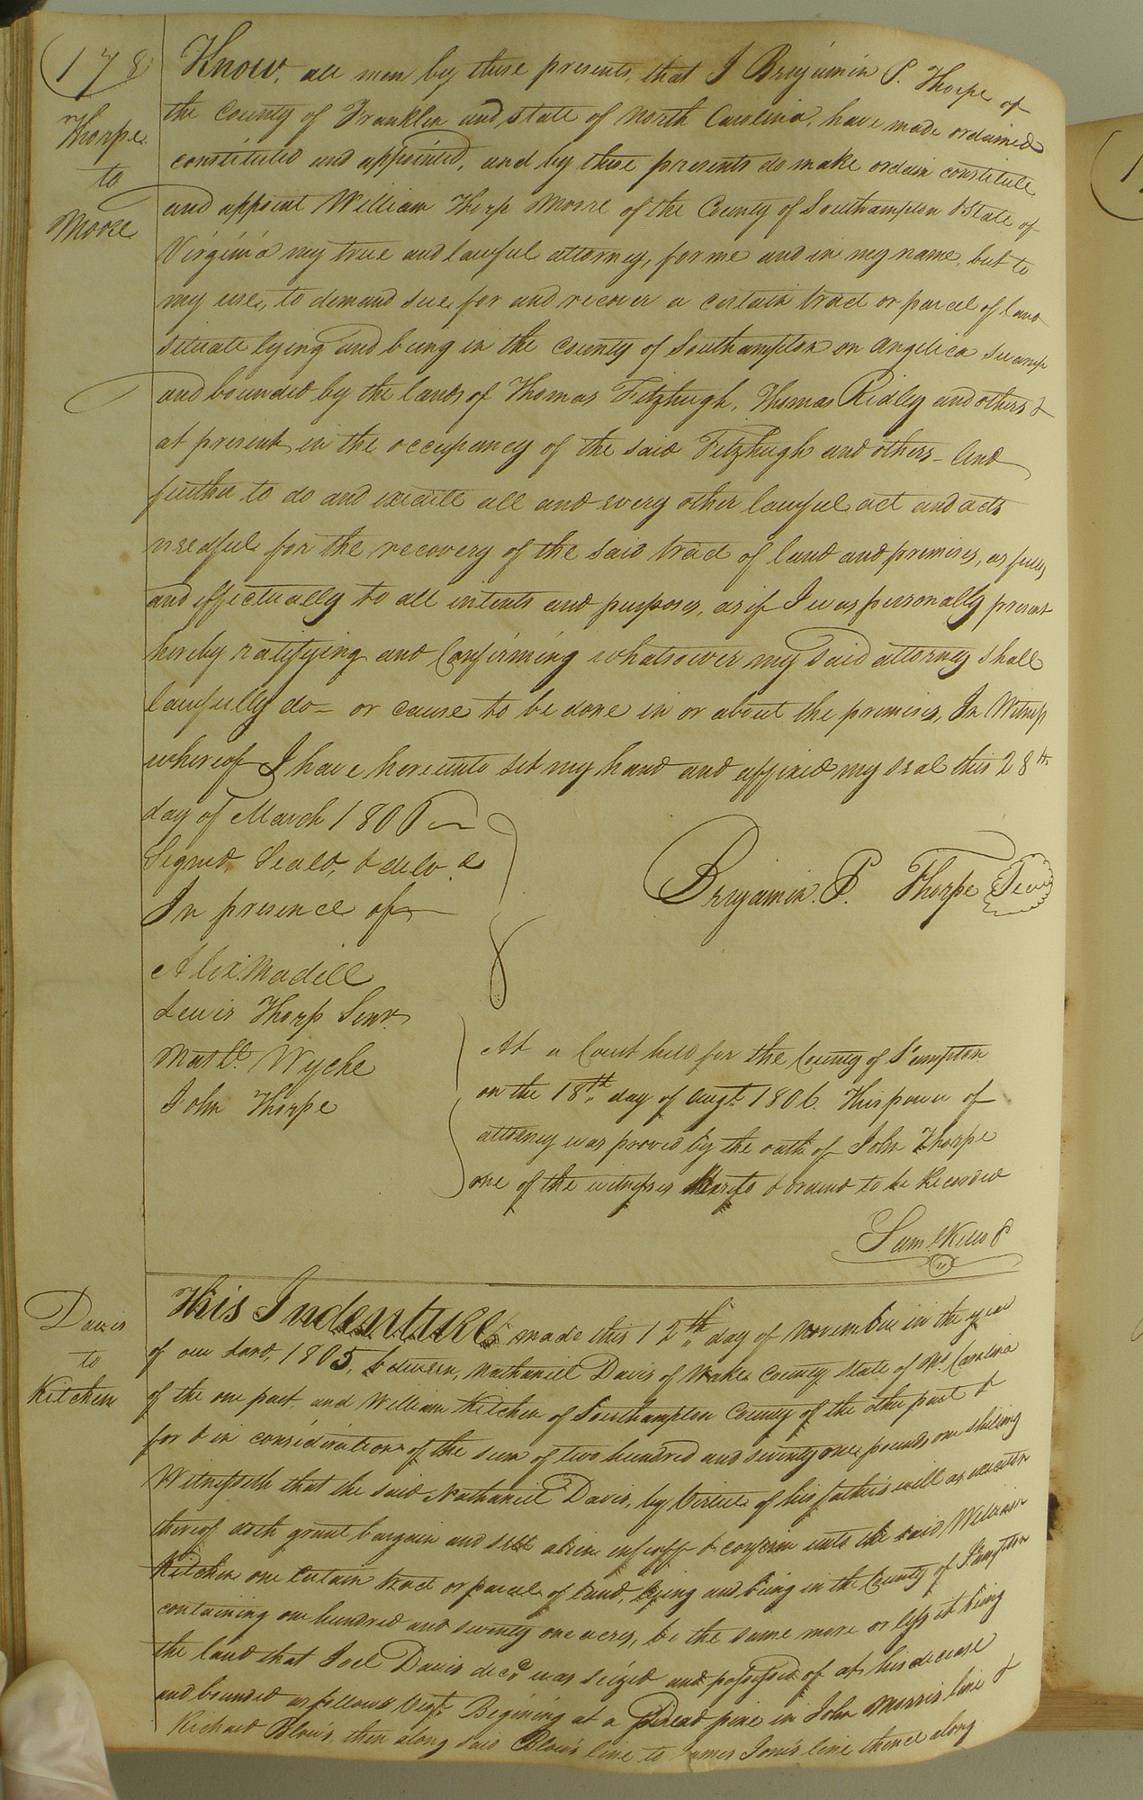 178
Thorpe
to
Moore
Know, all men by these presents, that I Benjamin P. Thorpe of
the County of Franklin and State of North Carolina, have made ordained
constituted and appointed, and by these presents do make ordain constitute
and appoint William Thorp Moore of the County of Southampton & State of
Virginia my true and lawful attorney, for me and in my name, but to
my use, to demand sue for and recover a certain tract or parcel of land
situate lying and being in the County of Southampton on Angelica Swamp
and bounded by the lands of Thomas Fitzhugh, Thomas Ridley and others &
at present in the occupancy of the said Fitzhugh and others - And
further to do and execute all and every other lawful act and acts
needful for the recovery of the said tract of land and premises, as fully
and effectually to all intents and purposes, as if I was personally present
hereby ratifying and Confirming whatsoever my said attorney shall
lawfully do - or cause to be done in or about the premises, In Witness
whereof I have hereunto set my hand and affixed my seal this 28th
day of March 180
Signed, Seald, & delv.d
In presence of
Benjamin. P. Thorpe Seal
Alex. Madill
Lewis Thorp Senr.
Matt. Wyche
John Thorpe
At a Court held for the County of S'ampton
on the 18th day of Augt. 1806. This power of
attorney was proved by the oath of John Thorpe
one of the witnesses thereto & ordered to be Recorded
Saml Kello
Davis
to
Kitchen
This Indenture made this 12th day of November in the year
of our Lord, 1805, between, Nathaniel Davis of Wake County State of No. Carolina
of the one part and William Kitchen of Southampton County of the other part &
for & in consideration of the sum of two hundred and seventy one pounds one shilling
Witnesseth that the said Nathaniel Davis, by Virtue of his father's will as executor
thereof doth grant bargain and sell alien infeoff & confirm unto the said William
Kitchen one certain tract or parcel of land, lying and being in the County of S'ampton
containing one hundred and seventy one acres, be the same more or less it being
the land that Joel Davis decd. was seized and possessed of at his decease
and bounded as follows Vizt. Begining at a dead pine in John Morris line &
Richard Blow's, then along said Blow's line to James Jones line thence along